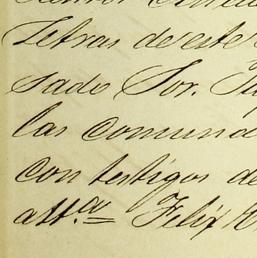 Letras de este
sado Sor.
las comun
con testigos de
att.a Felix